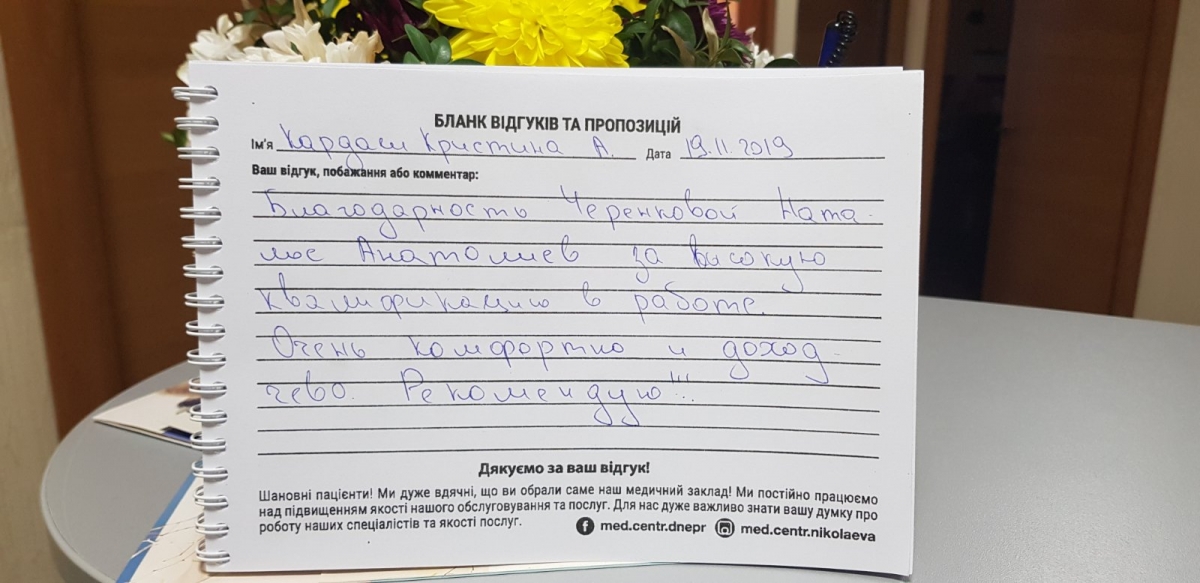 БЛАНК ВІДГУКІВ ТА ПРОПОЗИЦІЙ
Ім'я Кардаш Кристина А. Дата 19.11.2019
Ваш відгук, побажання або комментар:
Благодарность Черенковой Ната-
лье Анатолиев за высокую
квалификацию в работе.
Очень комфортно и доход-
чево. Рекомендую!!!
Дякуємо за ваш відгук!
Шановні пацієнти! Ми дуже вдячні, що ви обрали саме наш медичний заклад! Ми постійно працюємо
над підвищенням якості нашого обслуговування та послуг. Для нас дуже важливо знати вашу думку про
роботу наших спеціалістів та якості послуг.
med.centr.dnepr med.centr.nikolaeva